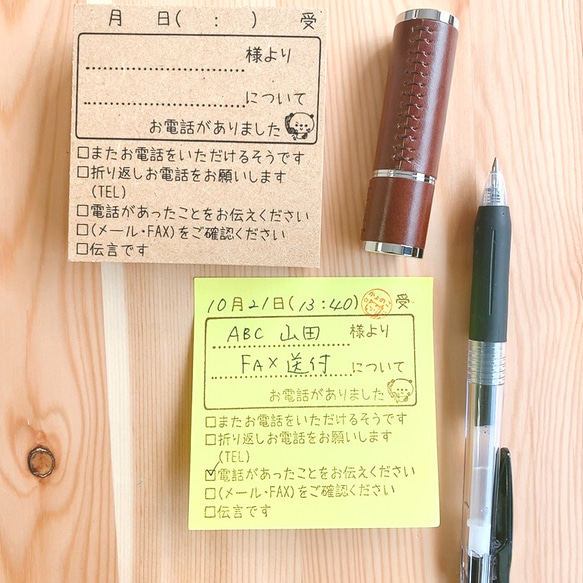 月 日( : ) 受
様より
について
お電話がありました
□またお電話をいただけるそうです
□折り返しお電話をお願いします
(TEL)
□電話があったことをお伝えください
□(メール・FAX)をご確認ください
□伝言です
10月21日(13:40) 受
ABC 山田 様より
FAX 送付 について
お電話がありました
□またお電話をいただけるそうです
□折り返しお電話をお願いします
(TEL)
☑電話があったことをお伝えください
□(メール・FAX)をご確認ください
□伝言です